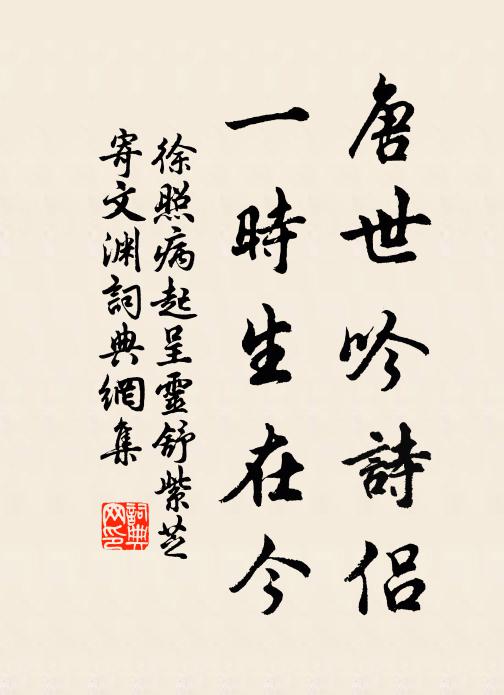 唐世吟詩侶
一時生在今
徐照病起呈靈舒紫芝
寄文渊詞典網集
詞典
网印